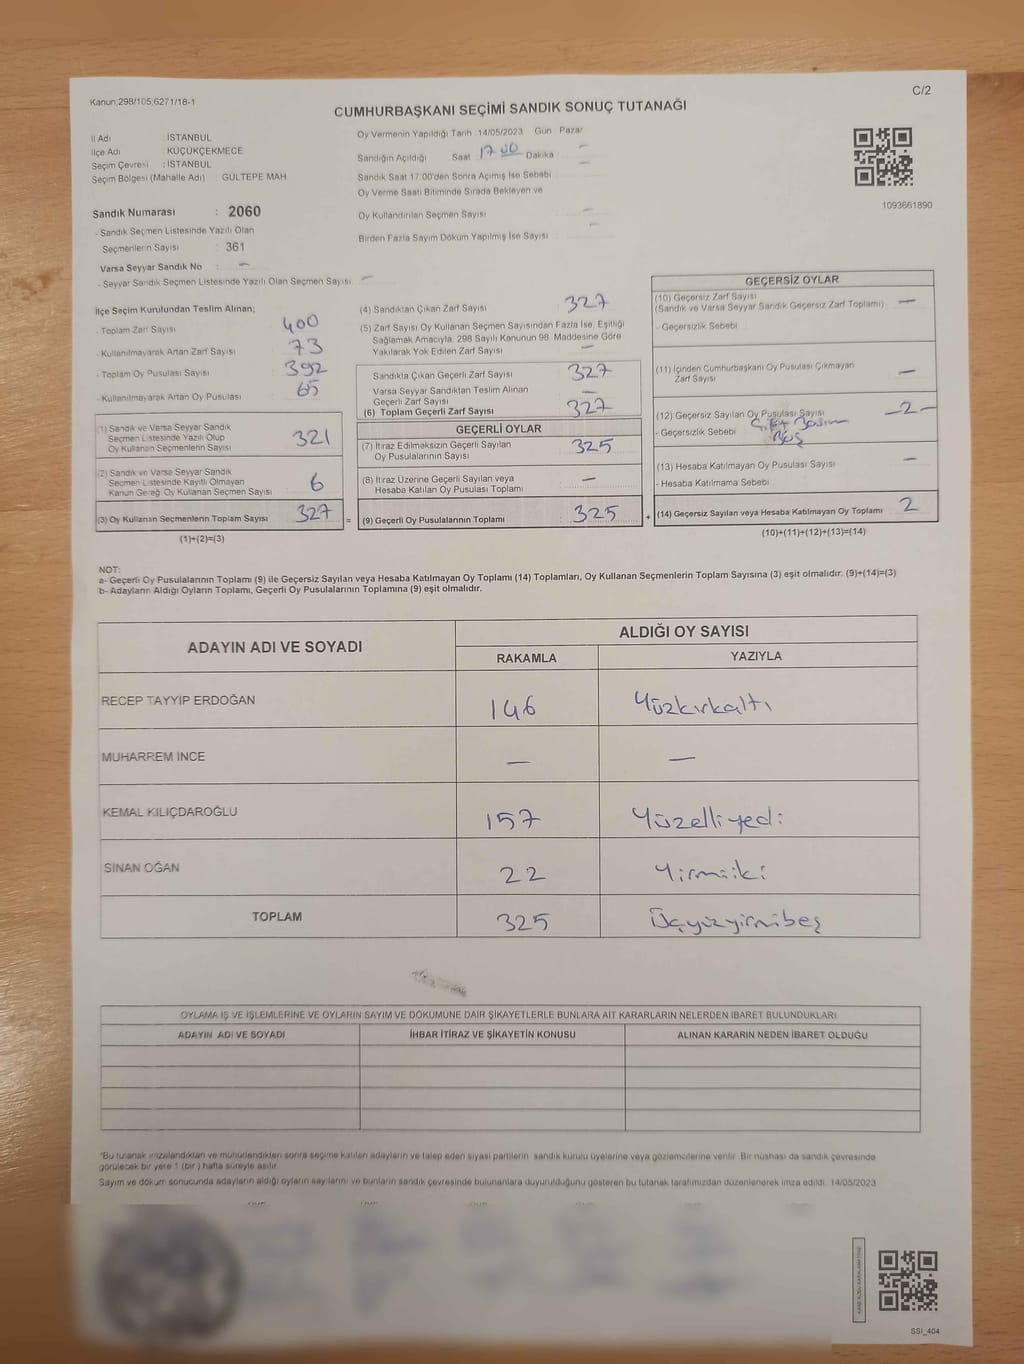 Kanun;298/105,6271/18-1
C/2
CUMHURBAŞKANI SEÇİMİ SANDIK SONUÇ TUTANAĞI
İl Adı : İSTANBUL
İlçe Adı : KÜÇÜKÇEKMECE
Seçim Çevresi : İSTANBUL
Seçim Bölgesi (Mahalle Adı) GÜLTEPE MAH.
Sandık Numarası : 2060
- Sandık Seçmen Listesinde Yazılı Olan
Seçmenlerin Sayısı : 361
Varsa Seyyar Sandık No : —
- Seyyar Sandık Seçmen Listesinde Yazılı Olan Seçmen Sayısı : —
Oy Vermenin Yapıldığı Tarih : 14/05/2023 Gün : Pazar
Sandığın Açıldığı Saat 17 00 Dakika —
Sandık Saat 17:00'den Sonra Açımış İse Sebebi
Oy Verme Saati Bitiminde Sırada Bekleyen ve
Oy Kullandırılan Seçmen Sayısı —
Birden Fazla Sayım Döküm Yapılmış İse Sayısı : —
1093661890
İlçe Seçim Kurulundan Teslim Alınan;
- Toplam Zarf Sayısı 400
- Kullanılmayarak Artan Zarf Sayısı 73
- Toplam Oy Pusulası Sayısı 392
- Kullanılmayarak Artan Oy Pusulası 65
(1) Sandık ve Varsa Seyyar Sandık
Seçmen Listesinde Yazılı Olup
Oy Kullanan Seçmenlerin Sayısı 321
(2) Sandık ve Varsa Seyyar Sandık
Seçmen Listesinde Kayıtlı Olmayan
Kanun Gereği Oy Kullanan Seçmen Sayısı 6
(3) Oy Kullanan Seçmenlerin Toplam Sayısı 327 =
(1)+(2)=(3)
(4) Sandıktan Çıkan Zarf Sayısı 327
(5) Zarf Sayısı Oy Kullanan Seçmen Sayısından Fazla İse, Eşitliği
Sağlamak Amacıyla, 298 Sayılı Kanunun 98. Maddesine Göre
Yakılarak Yok Edilen Zarf Sayısı —
Sandıkta Çıkan Geçerli Zarf Sayısı 327
Varsa Seyyar Sandıktan Teslim Alınan
Geçerli Zarf Sayısı —
(6) Toplam Geçerli Zarf Sayısı 327
GEÇERLİ OYLAR
(7) İtiraz Edilmeksizin Geçerli Sayılan
Oy Pusulalarının Sayısı 325
(8) İtiraz Üzerine Geçerli Sayılan veya
Hesaba Katılan Oy Pusulası Toplamı —
(9) Geçerli Oy Pusulalarının Toplamı 325 +
GEÇERSİZ OYLAR
(10) Geçersiz Zarf Sayısı
(Sandık ve Varsa Seyyar Sandık Geçersiz Zarf Toplamı) —
- Geçersizlik Sebebi
(11) İçinden Cumhurbaşkanı Oy Pusulası Çıkmayan
Zarf Sayısı —
(12) Geçersiz Sayılan Oy Pusulası Sayısı —2—
- Geçersizlik Sebebi Çift Basım
Boş
(13) Hesaba Katılmayan Oy Pusulası Sayısı —
- Hesaba Katılmama Sebebi
(14) Geçersiz Sayılan veya Hesaba Katılmayan Oy Toplamı 2
(10)+(11)+(12)+(13)=(14)
NOT:
a- Geçerli Oy Pusulalarının Toplamı (9) ile Geçersiz Sayılan veya Hesaba Katılmayan Oy Toplamı (14) Toplamları, Oy Kullanan Seçmenlerin Toplam Sayısına (3) eşit olmalıdır. (9)+(14)=(3)
b- Adayların Aldığı Oyların Toplamı, Geçerli Oy Pusulalarının Toplamına (9) eşit olmalıdır.
ADAYIN ADI VE SOYADI
ALDIĞI OY SAYISI
RAKAMLA YAZIYLA
RECEP TAYYİP ERDOĞAN 146 Yüzkırkaltı
MUHARREM İNCE — —
KEMAL KILIÇDAROĞLU 157 Yüzelliyedi
SİNAN OĞAN 22 Yirmiiki
TOPLAM 325 Üçyüzyirmibeş
OYLAMA İŞ VE İŞLEMLERİNE VE OYLARIN SAYIM VE DÖKÜMÜNE DAİR ŞİKAYETLERLE BUNLARA AİT KARARLARIN NELERDEN İBARET BULUNDUKLARI
ADAYIN ADI VE SOYADI İHBAR İTİRAZ VE ŞİKAYETİN KONUSU ALINAN KARARIN NEDEN İBARET OLDUĞU
*Bu tutanak imzalandıktan ve mühürlendikten sonra seçime katılan adayların ve talep eden siyasi partilerin sandık kurulu üyelerine veya gözlemcilerine verilir. Bir nüshası da sandık çevresinde
görülecek bir yere 1 (bir ) hafta süreyle asılır.
Sayım ve döküm sonucunda adayların aldığı oyların sayılarını ve bunların sandık çevresinde bulunanlara duyurulduğunu gösteren bu tutanak tarafımızdan düzenlenerek imza edildi. 14/05/2023
SSI_404